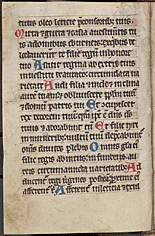 tuus oleo leticie pre consortibus tuis
Mirra et gutta et casia a uestimentis tu
is a domibus eburneis ex quibus de
lectauerunt te filie regum in honore tuo
Astitit regina a dextris tuis
in uestitu deaurato circumdata ua
rietate Audi filia et uide et inclina
aurem tuam et obliuiscere populum tuum
et domum patris tui Et concupiscet
rex decorem tuum quoniam ipse est dominus deus tu
us et adorabunt eum Et filie tyri
in muneribus uultum tuum deprecabuntur
omnes diuites plebis Omnis gloria eius
filie regis ab intus in fimbriis au
reis circumamicta uarietatibus Ad
ducentur regi uirgines post eam proxime eius
afferentur Afferentur in leticia et exul